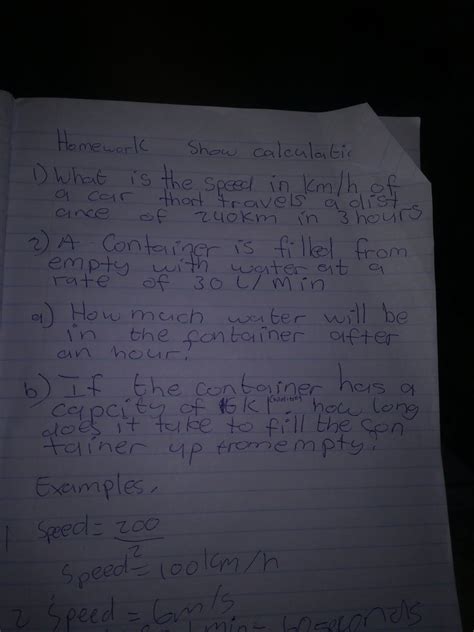 Homework Show calculatic
1) What is the speed in km/h of
a car that travels a dist
ance of 240km in 3 hours
2) A Container is filled from
empty with water at a
rate of 30 L/min
a) How much water will be
in the container after
an hour?
b) If the container has a
capcity of 6Kl how long
does it take to fill the con
tainer up from empty.
Examples.
1 Speed = 200
2
Speed = 100km/h
2 Speed = 6m/s
1 min = 60 seconds